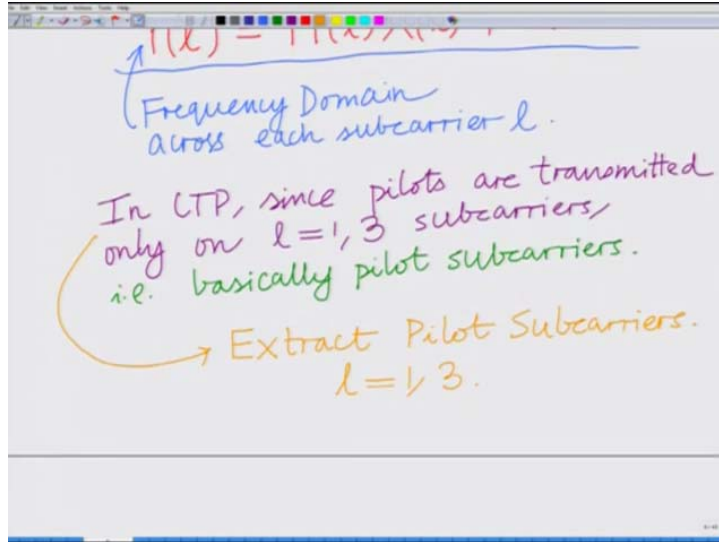 Frequency Domain
across each subcarrier l.
In CTP, since pilots are transmitted
only on l=1, 3 subcarriers,
i.e. basically pilot subcarriers.
Extract Pilot Subcarriers.
l=1, 3.